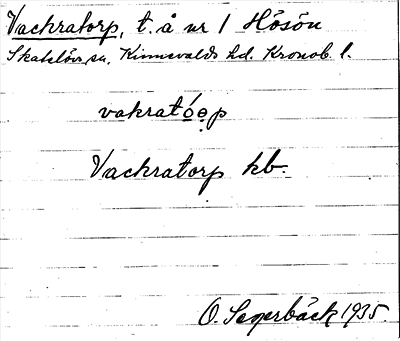 Vackratorp, t. å nr 1 Hösön
Skatelövs sn, Kinnevalds hd. Kronob. l.
vakratóep
Vackratorp kb.
O. Segerbäck 1935.